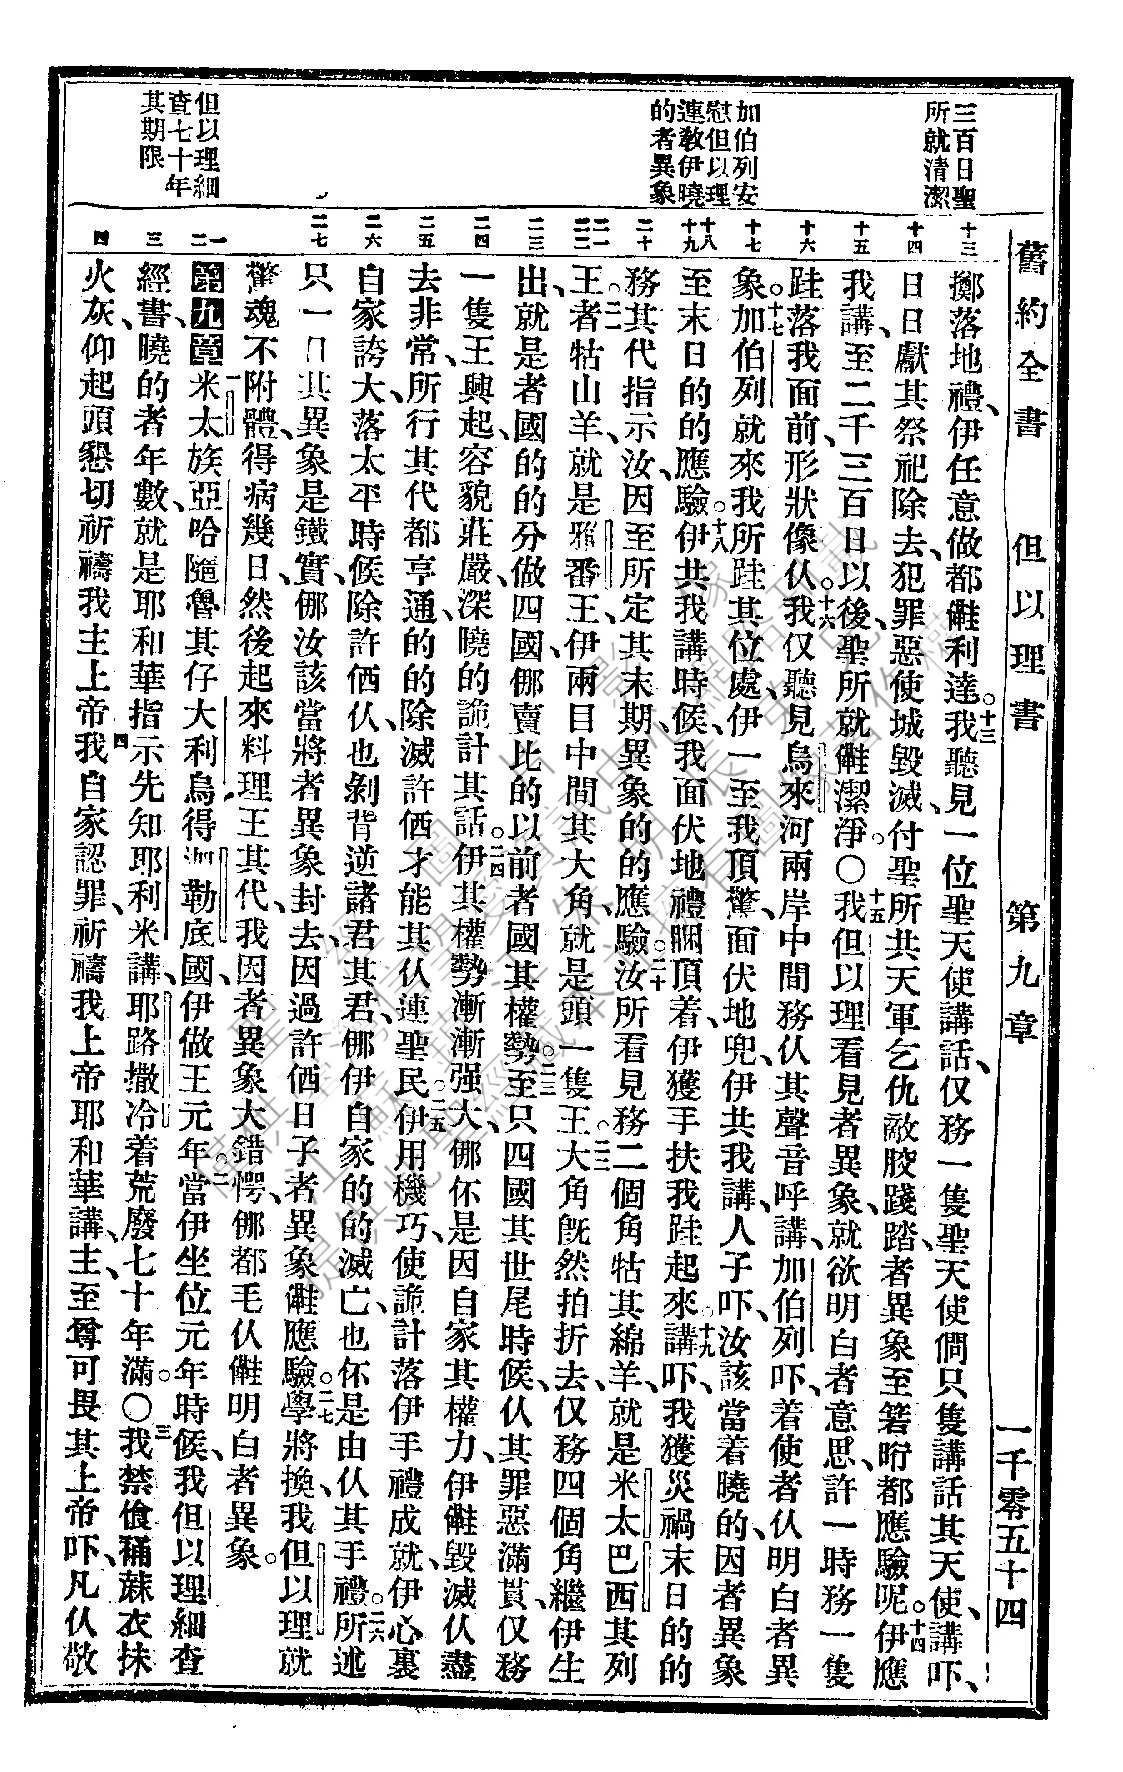 舊約全書 但以理書 第九章 一千零五十四
三百日聖
所就清潔
加伯列安
慰但以理
連教伊曉
的者異象
但以理細
查七十年
其期限
十三 十四 十五 十六 十七 十八 十九 二十 二一 二二 二三 二四 二五 二六 二七 一 二 三 四
擲落地禮、伊任意做都𣍐利達。十三我聽見一位聖天使講話、仅務一隻聖天使問只隻講話其天使、講吓、
日日獻其祭祀除去、犯罪惡使城毀滅、付聖所共天軍乞仇敵骹踐踏、者異象至箬昕都應驗呢。十四伊應
我講、至二千三百日以後、聖所就𣍐潔淨。〇十五我但以理看見者異象、就欲明白者意思、許一時務一隻
跬落我面前、形狀像仈。十六我仅聽見烏來河兩岸中間務仈其聲音呼講、加伯列吓、着使者仈明白者異
象。十七加伯列就來我所跬其位處、伊一至我頂驚、面伏地兜、伊共我講、人子吓、汝該當着曉的、因者異象
至末日的的應驗。十八伊共我講時候、我面伏地禮睏、頂着伊獲手扶我跬起來。十九講吓、我獲災禍末日的的
務其代指示汝、因至所定其末期、異象的的應驗。二十汝所看見務二個角牯其綿羊、就是米太巴西其列
王。二一者牯山羊、就是雅番王、伊兩目中間其大角、就是頭一隻王。二二大角旣然拍折去、仅務四個角繼伊生
出、就是者國的的分做四國、㑚賣比的以前者國其權勢。二三至只四國其世尾時候、仈其罪惡滿貫、仅務
一隻王興起、容貌莊嚴、深曉的詭計其話。二四伊其權勢漸漸强大、㑚伓是因自家其權力、伊𣍐毀滅仈盡
去非常、所行其代都亨通、的的除滅許㑄才能其仈連聖民。二五伊用機巧、使詭計落伊手禮成就、伊心裏
自家誇大、落太平時候、除許㑄仈、也剝背逆諸君其君、㑚伊自家的的滅亡、也伓是由仈其手禮。二六所述
只一日其異象是鐵實、㑚汝該當將者異象封去、因過許㑄日子、者異象𣍐應驗。二七學將換我但以理就
驚魂不附體、得病幾日、然後起來料理王其代、我因者異象大錯愕、㑚都毛仈𣍐明白者異象。
第九章一米太族亞哈隨魯其仔大利烏得迦勒底國、伊做王元年、二當伊坐位元年時候、我但以理細查
經書、曉的者年數就是耶和華指示先知耶利米講、耶路撒冷着荒廢七十年滿。〇三我禁食𥛮蔴衣抹
火灰、仰起頭懇切祈禱我主上帝、四我自家認罪、祈禱我上帝耶和華講、主至尊可畏其上帝吓、凡仈敬